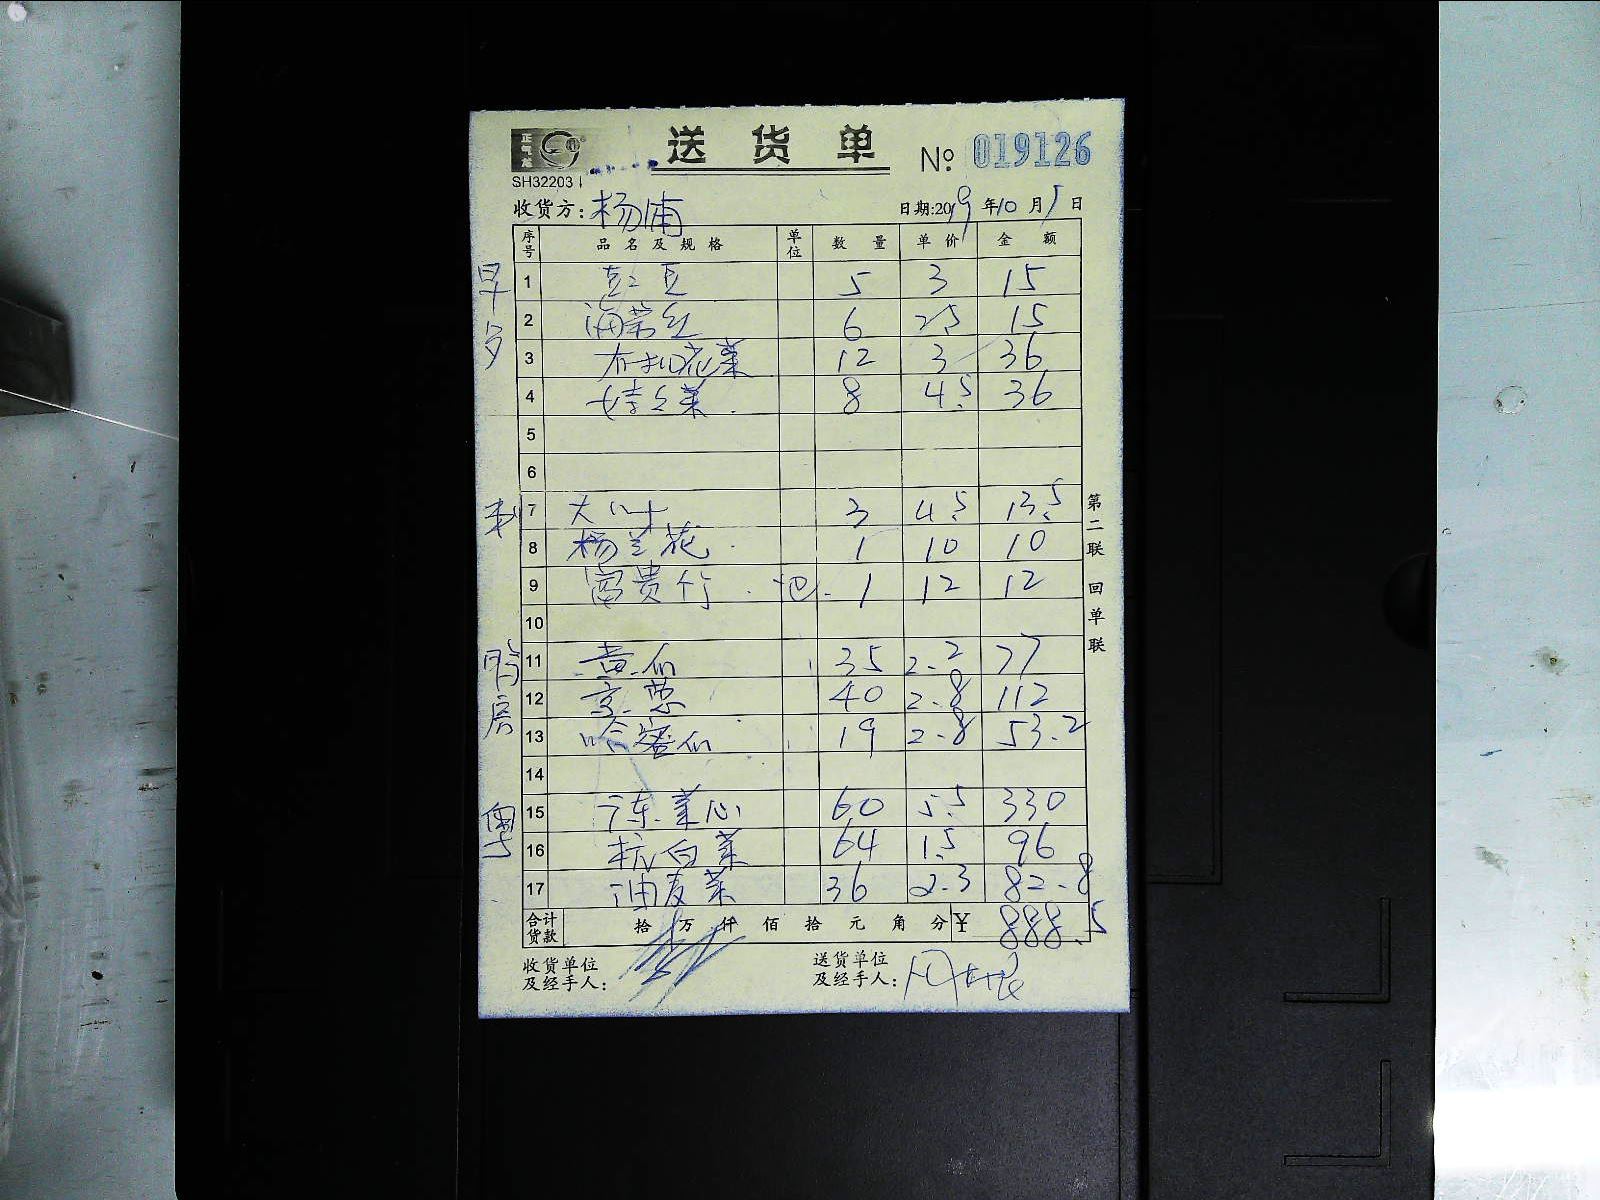 正气龙
送货单 № 019126
SH32203
收货方: 杨浦 日期:2019年10月5日
序号 品名及规格 单位 数量 单价 金额
早夕
1 豇豆 5 3 15
2 海带丝 6 2.5 15
3 有机花菜 12 3 36
4 娃娃菜 8 4.5 36
5
6
刺
7 大叶 3 4.5 13.5
8 杨兰花 1 10 10
9 富贵竹 包 1 12 12
10
鸭房
11 黄瓜 35 2.2 77
12 京葱 40 2.8 112
13 哈密瓜 19 2.8 53.2
14
粤
15 广东菜心 60 5.5 330
16 杭白菜 64 1.5 96
17 油麦菜 36 2.3 82.8
合计货款 拾 万 仟 佰 拾 元 角 分 ¥ 888.5
收货单位及经手人: 送货单位及经手人:
第二联 回单联